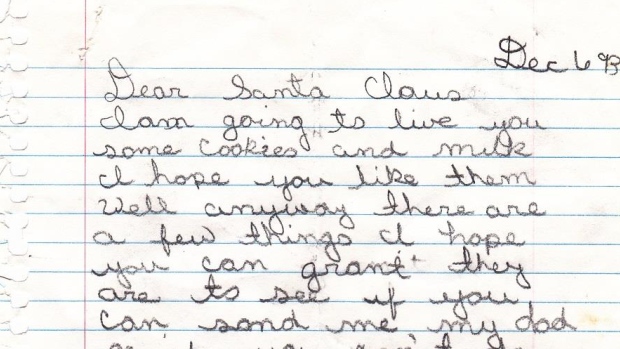 Dec 6 93
Dear Santa Claus
I am going to live you
some cookies and milk
I hope you like them
Well anyway there are
a few things I hope
you can grant they
are to see if you
can sand me my dad